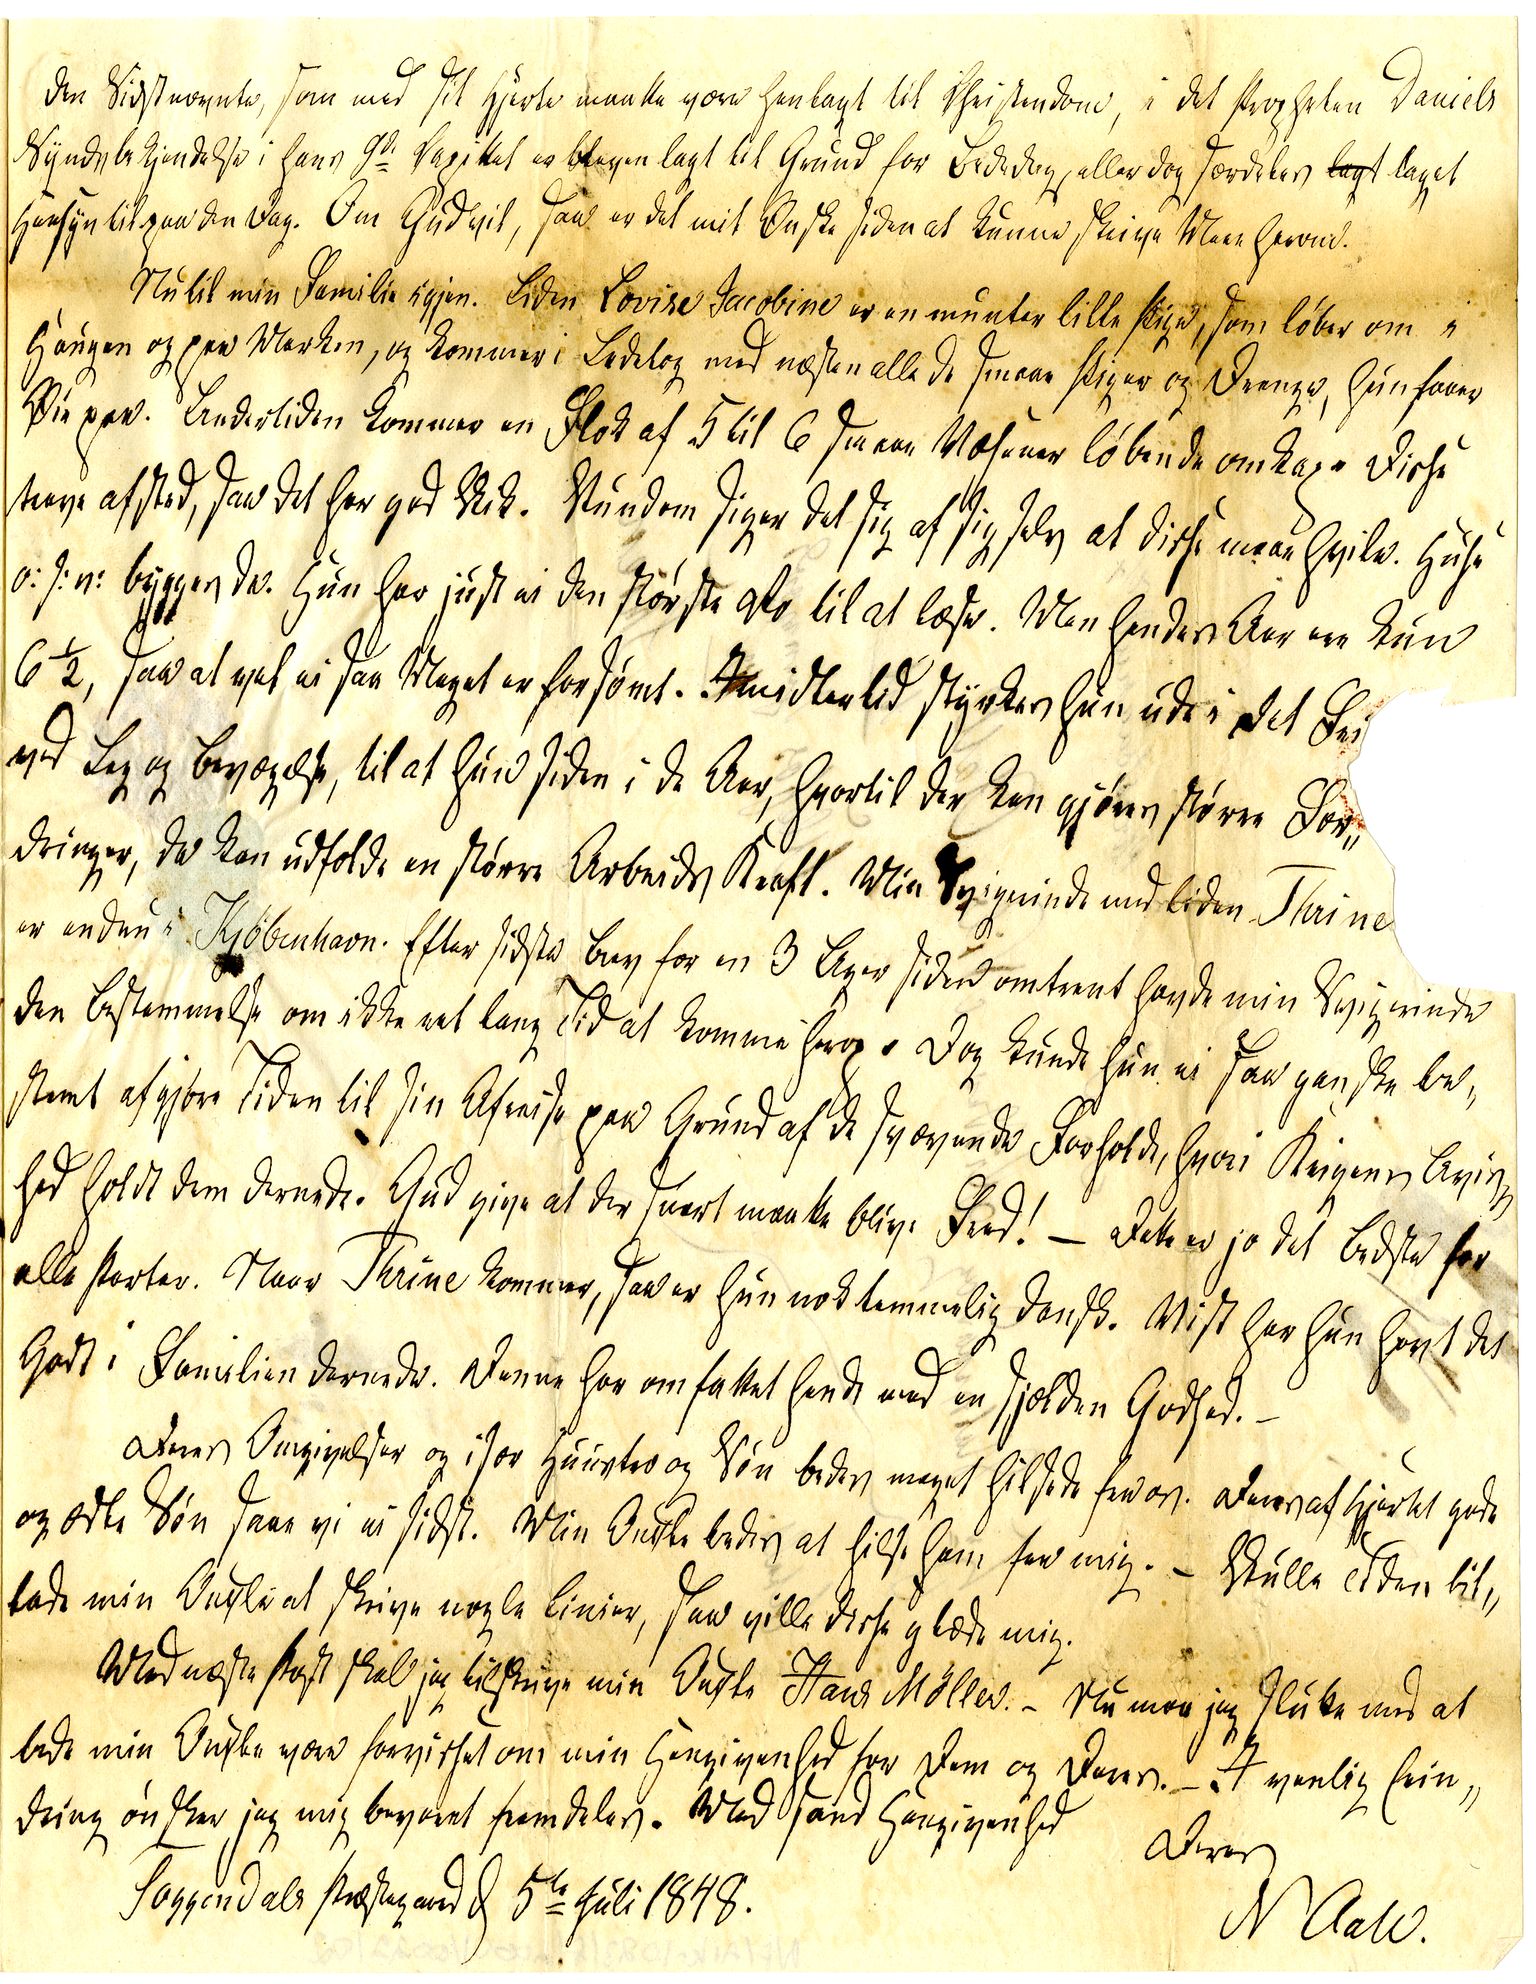 den Sidstnævnte, som med sit Hjerte maatte være henlagt til Christendom, i det Propheten Daniels
Syndsbekjendelse i hans 9de Capittel er bleven lagt til Grund for Bededag, eller dog særdeles lagt taget
Hensyn til paa den Dag. Om Gud vil, saa er det mit Ønske siden at kunne skrive Mere herom.
Nu til min Familie igjen. Liden Lovise Jacobine er en munter lille Pige, som løber om i
Haugen og paa Marken, og kommer i Ledetog med næsten alle de smaae Piger og Drenge, hun faaer
Øie paa. Undertiden kommer en Flok af 5 til 6 smaae Væsener løbende omkap. Disse
trave afsted, saa det har god Skik. Stundom siger det sig af sig selv at disse maae hvile. Huse
o: s: v: bygges da. Hun har just ei den største Lyst til at læse. Men hendes Aar ere kun
6½, saa at vel ei saa Meget er forsømt. Imidlertid styrkes hun ude i det Fri
ved Leg og Bevægelse, til at hun siden i de Aar, hvortil der kan gjøres større For„
dringer, da kan udfolde en større Arbeids Kraft. Min Svigerinde med liden Thrine
er endnu i Kjøbenhavn. Efter sidste Brev for en 3 Uger siden omtrent havde min Svigerinde
den Bestemmelse om ikke ret lang Tid at komme herop. Dog kunde hun ei saa ganske be„
stemt afgjøre Tiden til sin Afreise paa Grund af de svævende Forholde, hvori Krigens Uvis„
hed holdt dem dernede. Gud give at der snart maatte blive Fred! — Dette er jo det Bedste for
alle Parter. Naar Thrine kommer, saa er hun nok temmelig dansk. Vist har hun havt det
Godt i Familien dernede. Denne har omfattet hende med en sjelden Godhed. –
Deres Omgivelser og især Huustro og Søn bedes meget hilsede fra os. Deres af Hjertet gode
og ædle Søn saae vi ei sidst. Min Onkel bedes at hilse ham fra mig. – Skulle Tiden til„
lade min Onkel at skrive nogle Linier, saa ville disse glæde mig.
Med næste Post skal jeg tilskrive min Onkel Hans Møller. – Nu maa jeg slutte med at
bede min Onkel være forvisset om min Hengivenhed for Dem og Deres. – I venlig Erin„
dring ønsker jeg mig bevaret fremdeles. Med sand Hengivenhed
Deres
Soggendals Præstegaard d 5te Juli 1848.
N Aall.